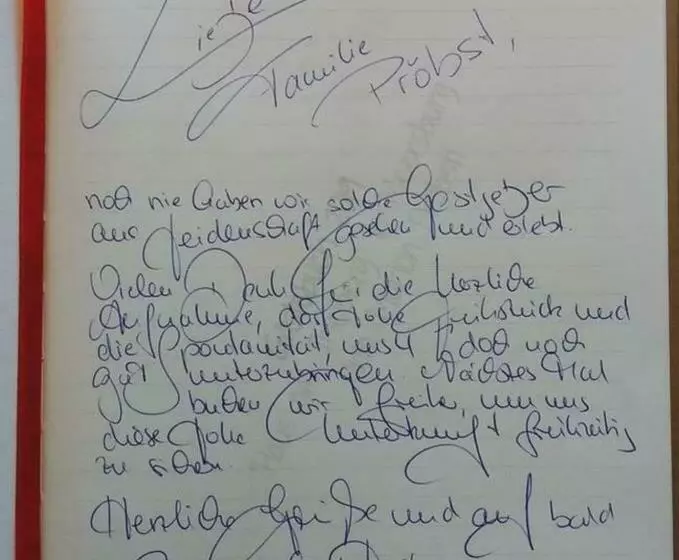 Liebe
Familie Pröbstl,
noch nie haben wir solche Gastgeber
aus Leidenschaft gesehen und erlebt.
Vielen Dank für die herzliche
Aufnahme, das tolle Frühstück und
die Spontanität, uns 4 doch noch
gut unterzubringen. Nächstes Mal
buchen wir früher, um uns
diese tolle Unterkunft frühzeitig
zu sichern.
Herzliche Grüße und auf bald